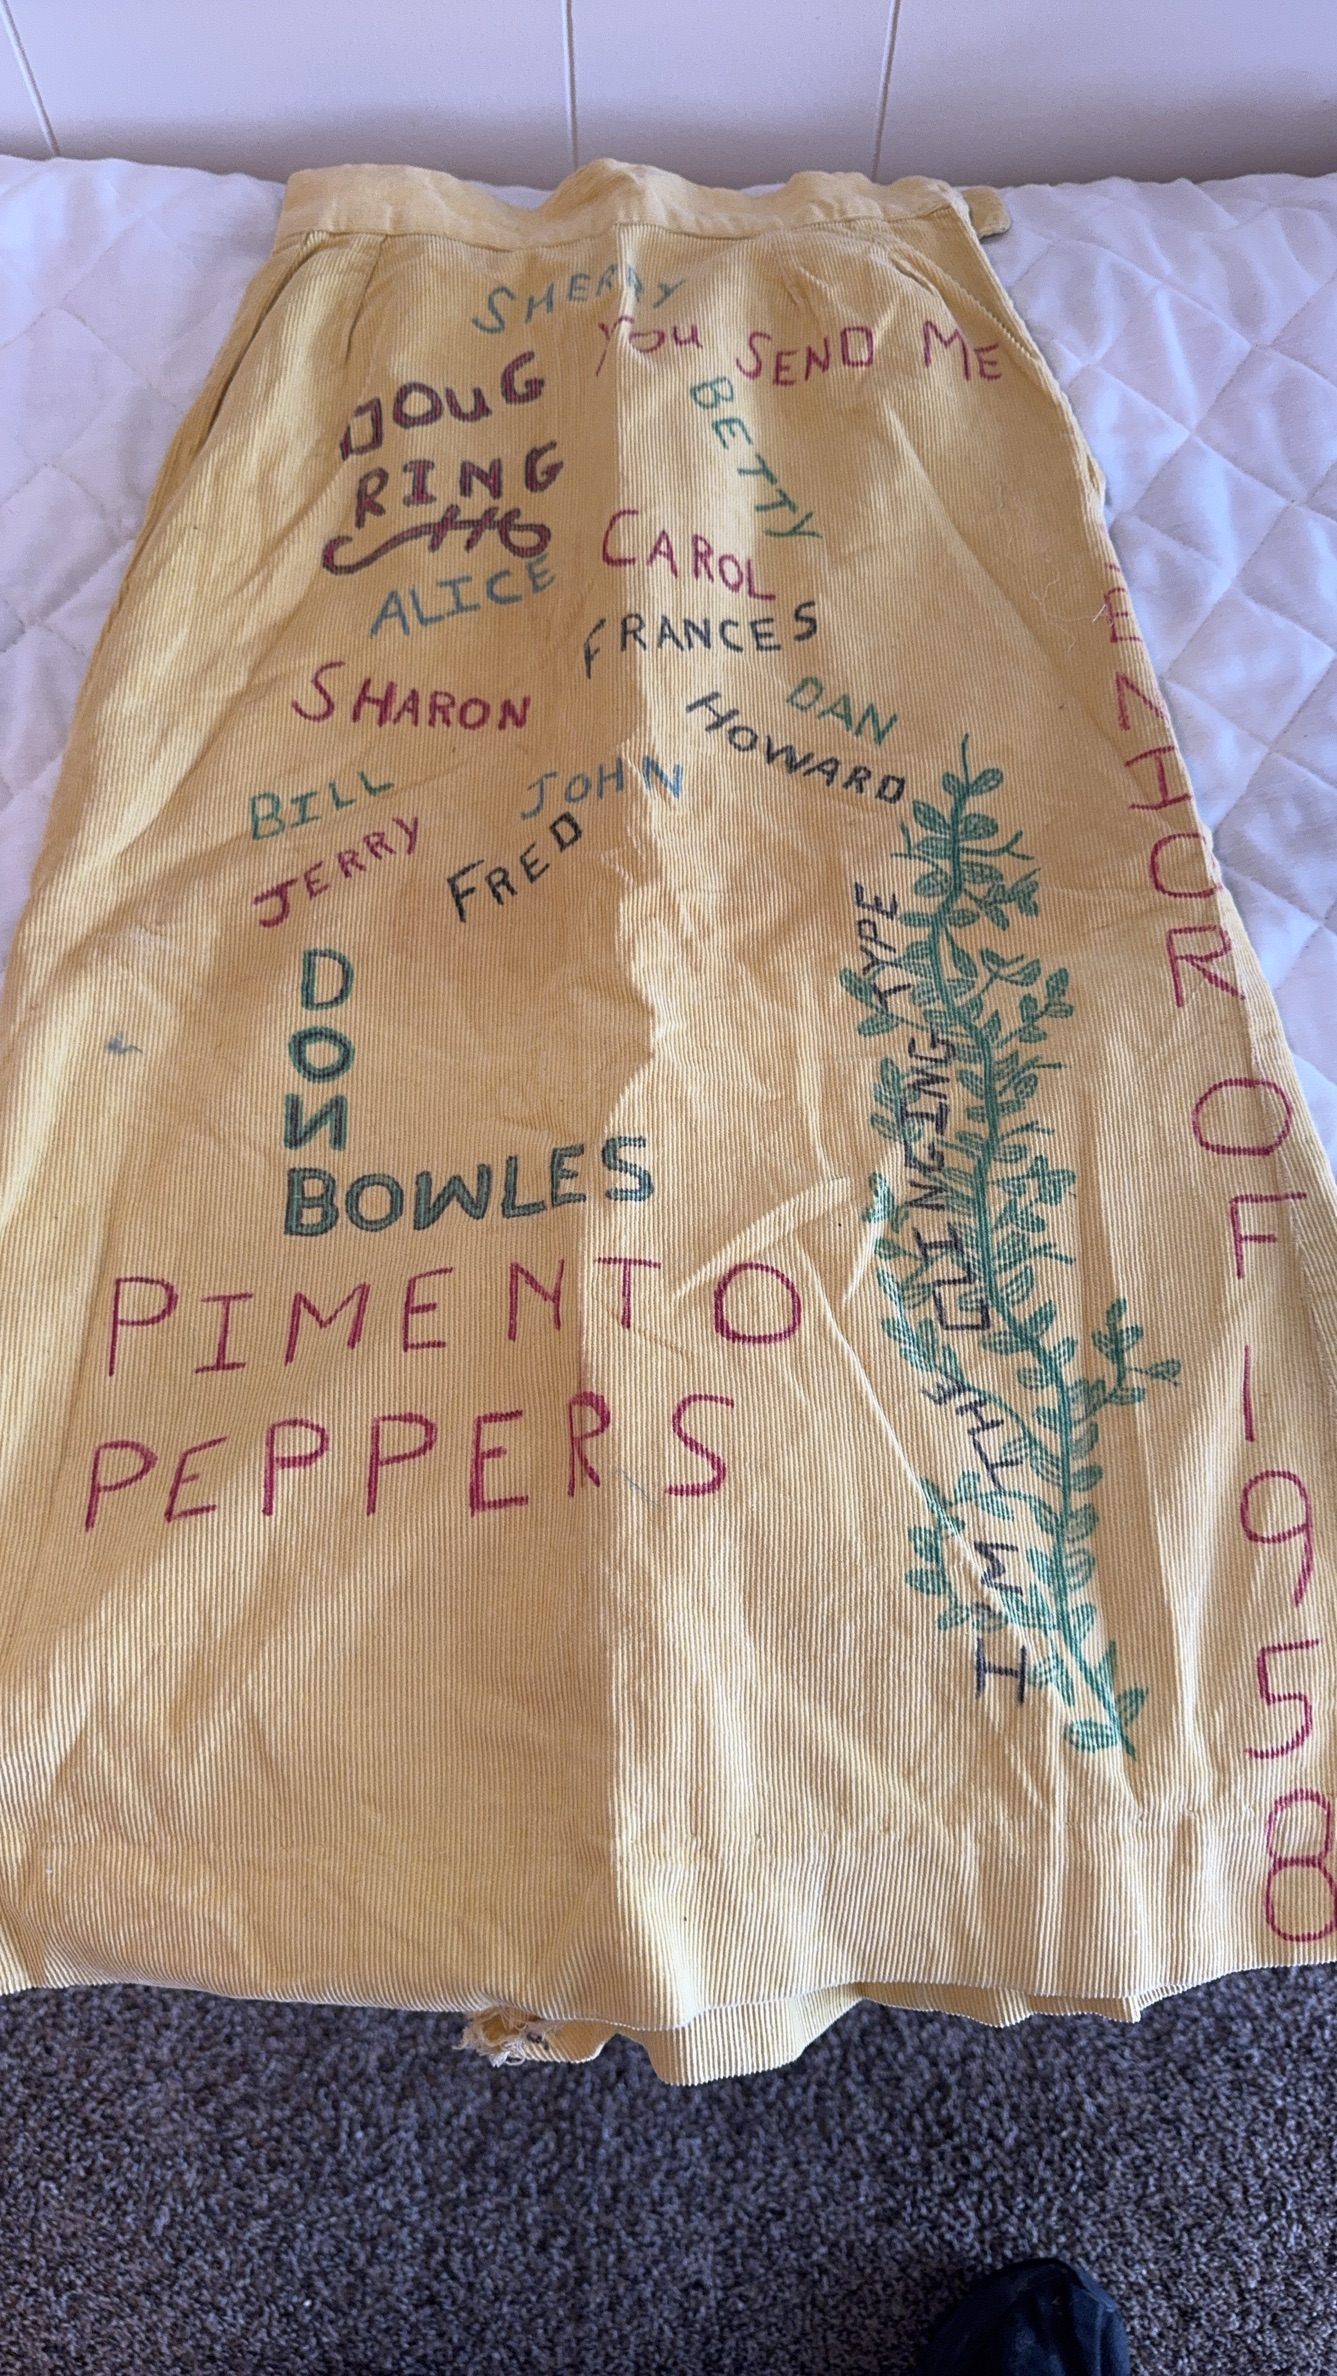 SHERRY
YOU SEND ME
DOUG
RING
BETTY
CAROL
ALICE
FRANCES
SHARON
DAN
HOWARD
BILL
JOHN
JERRY
FRED
DON
BOWLES
PIMENTO
PEPPERS
I'M THE CLINGING TYPE
SENIOR OF 1958